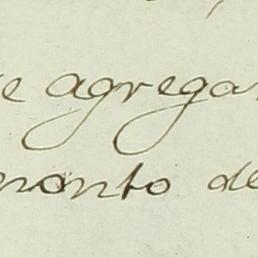 e agregar
pronto de